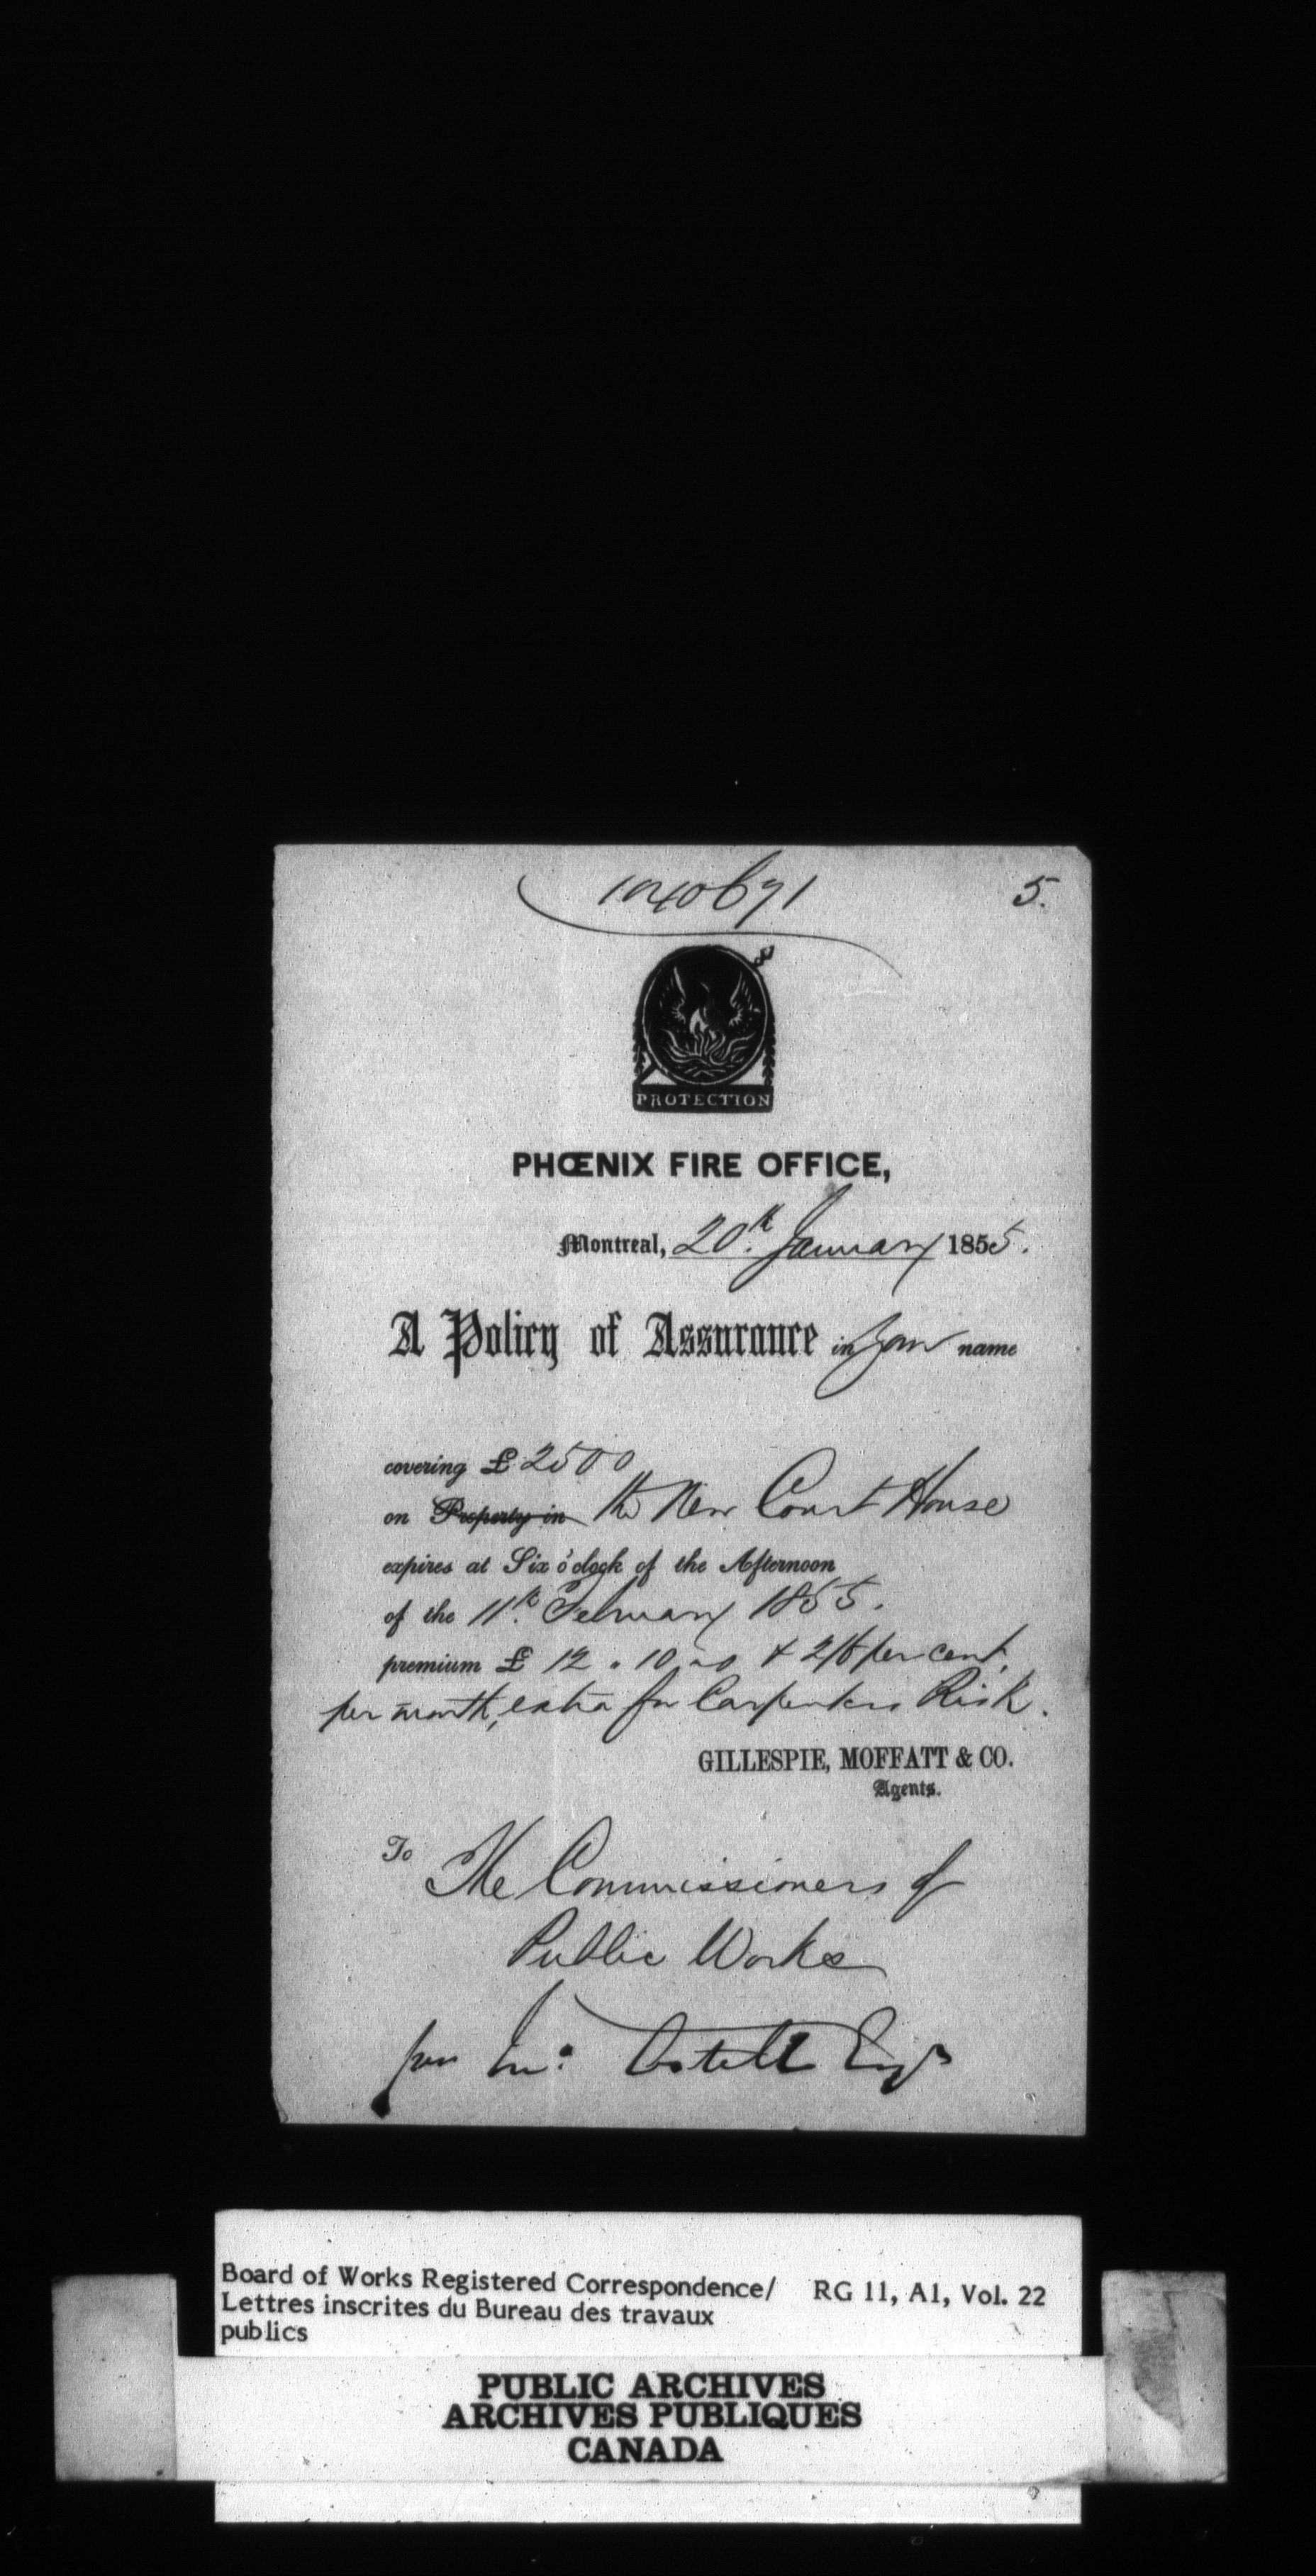 1040691 5.
PROTECTION
PHŒNIX FIRE OFFICE,
Montreal, 20th January 1855.
A Policy of Assurance in your name
covering £ 2500
on Property in the New Court House
expires at Six o'clock of the Afternoon
of the 11th February 1855.
premium £ 12 " 10 " 0 & 2/6 per cent.
per month, extra for Carpenters Risk.
GILLESPIE, MOFFATT & CO.
Agents.
To The Commissioners of
Public Works
per Jno. Ostell Esqr
Board of Works Registered Correspondence/ RG 11, A1, Vol. 22
Lettres inscrites du Bureau des travaux
publics
PUBLIC ARCHIVES
ARCHIVES PUBLIQUES
CANADA